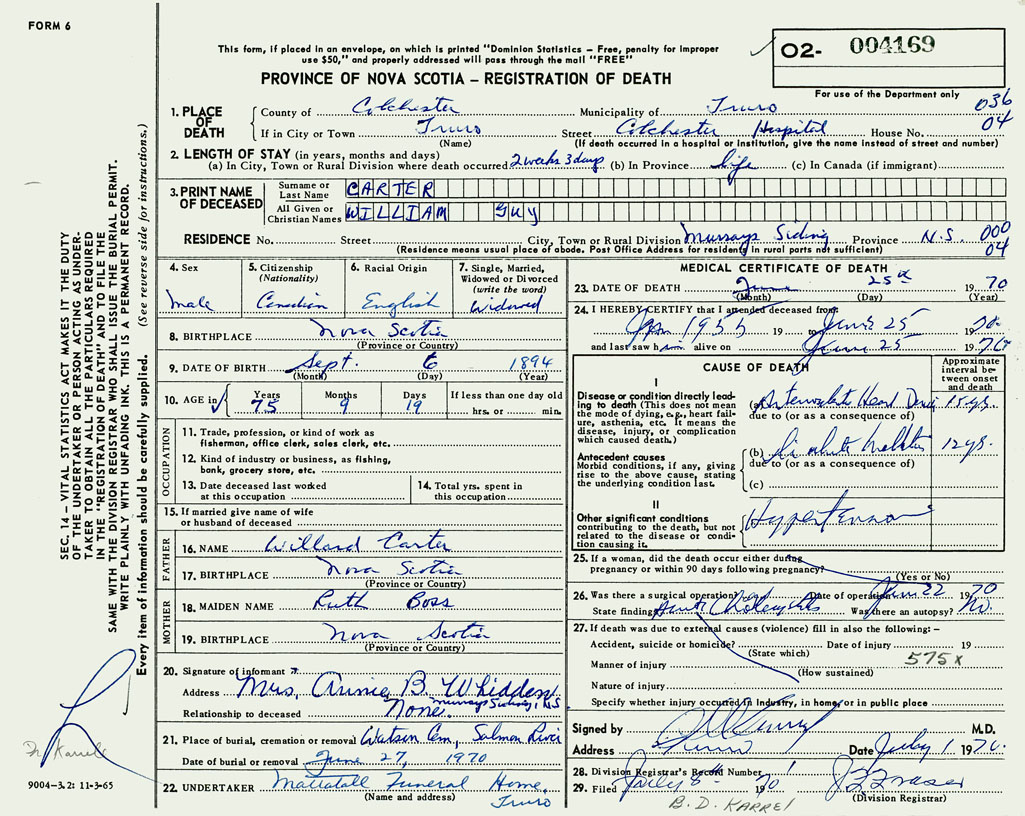 FORM 6
This form, if placed in an envelope, on which is printed "Dominion Statistics – Free, penalty for improper
use $50," and properly addressed will pass through the mail "FREE"
PROVINCE OF NOVA SCOTIA – REGISTRATION OF DEATH
O2- 004169
For use of the Department only
036
04
1. PLACE OF DEATH
County of Colchester Municipality of Truro
If in City or Town Truro Street Colchester Hospital House No.
(Name) (If death occurred in a hospital or institution, give the name instead of street and number)
2. LENGTH OF STAY (in years, months and days)
(a) In City, Town or Rural Division where death occurred 2 weeks 3 days (b) In Province life (c) In Canada (if immigrant)
3. PRINT NAME OF DECEASED
Surname or Last Name CARTER
All Given or Christian Names WILLIAM GUY
RESIDENCE No. Street City, Town or Rural Division Murrays Siding Province N.S. 000
04
(Residence means usual place of abode. Post Office Address for residents in rural parts not sufficient)
4. Sex
male
5. Citizenship
(Nationality)
Canadian
6. Racial Origin
English
7. Single, Married,
Widowed or Divorced
(write the word)
Widowed
8. BIRTHPLACE Nova Scotia
(Province or Country)
9. DATE OF BIRTH Sept. 6 1894
(Month) (Day) (Year)
10. AGE in Years Months Days If less than one day old
75 9 19 hrs. or min.
OCCUPATION
11. Trade, profession, or kind of work as
fisherman, office clerk, sales clerk, etc.
12. Kind of industry or business, as fishing,
bank, grocery store, etc.
13. Date deceased last worked
at this occupation
14. Total yrs. spent in
this occupation
15. If married give name of wife
or husband of deceased
FATHER
16. NAME Willard Carter
17. BIRTHPLACE Nova Scotia
(Province or Country)
MOTHER
18. MAIDEN NAME Ruth Boss
19. BIRTHPLACE Nova Scotia
(Province or Country)
20. Signature of informant
Address Mrs. Annie B. Whidden
Murrays Siding, N.S
Relationship to deceased None.
21. Place of burial, cremation or removal Watson Cem., Salmon River
Date of burial or removal June 27, 1970
22. UNDERTAKER Mattatall Funeral Home,
(Name and address) Truro
MEDICAL CERTIFICATE OF DEATH
23. DATE OF DEATH June 25th 19 70
(Month) (Day) (Year)
24. I HEREBY CERTIFY that I attended deceased from
Jan 1955 19 to June 25 19 70.
and last saw him alive on June 25 19 70
CAUSE OF DEATH
Approximate
interval be-
tween onset
and death
I
Disease or condition directly lead-
ing to death (This does not mean
the mode of dying, e.g., heart fail-
ure, asthenia, etc. It means the
disease, injury, or complication
which caused death.)
(a) Heart 15 yrs.
due to (or as a consequence of)
Antecedent causes
Morbid conditions, if any, giving
rise to the above cause, stating
the underlying condition last.
(b) 12 yrs.
due to (or as a consequence of)
(c)
II
Other significant conditions
contributing to the death, but not
related to the disease or condi-
tion causing it.
Hypertension
25. If a woman, did the death occur either during
pregnancy or within 90 days following pregnancy?
(Yes or No)
26. Was there a surgical operation? Date of operation June 22 1970
State finding Was there an autopsy? No.
27. If death was due to external causes (violence) fill in also the following: –
Accident, suicide or homicide? Date of injury 19
(State which) 575 x
Manner of injury
(How sustained)
Nature of injury
Specify whether injury occurred in industry, in home, or in public place
Signed by M.D.
Address Truro Date July 1 19 70.
28. Division Registrar's Record Number
29. Filed July 8th 19 70
(Division Registrar)
B. D. KARREL
SEC. 14 – VITAL STATISTICS ACT MAKES IT THE DUTY
OF THE UNDERTAKER OR PERSON ACTING AS UNDER-
TAKER TO OBTAIN ALL THE PARTICULARS REQUIRED
IN THE "REGISTRATION OF DEATH" AND TO FILE THE
SAME WITH THE DIVISION REGISTRAR WHO SHALL ISSUE THE BURIAL PERMIT.
WRITE PLAINLY WITH UNFADING INK. THIS IS A PERMANENT RECORD.
Every item of information should be carefully supplied. (See reverse side for instructions.)
Karrel
9004-3.2: 11-3-65